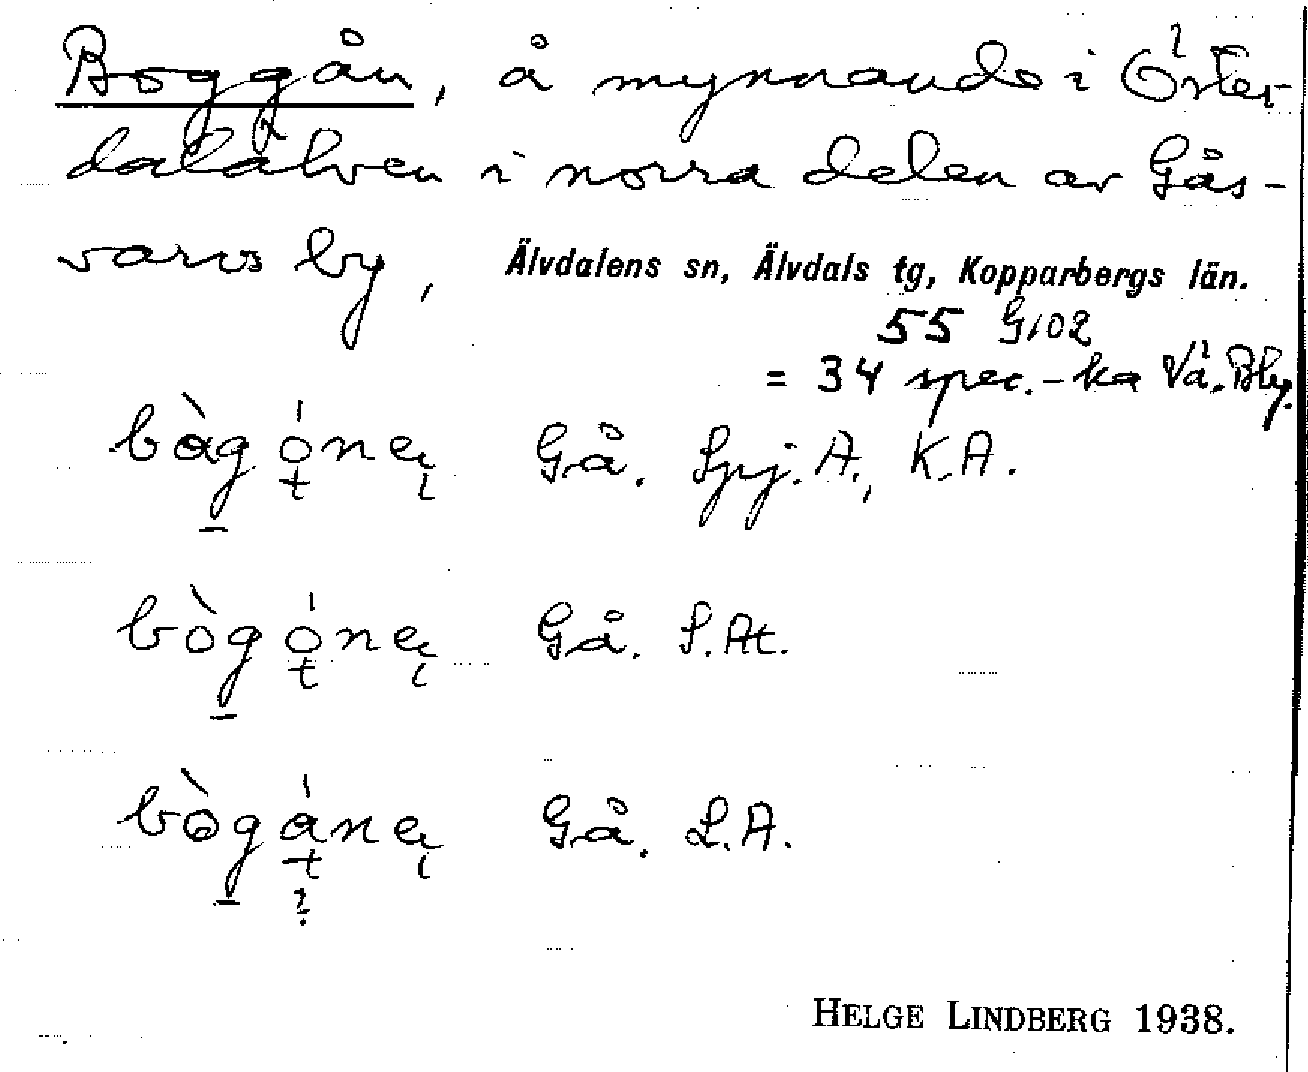 Boggån, å mynnande i Öster-
dalälven i norra delen av Gås-
varvs by, Älvdalens sn, Älvdals tg, Kopparbergs län.
55 G102
= 34 spec.-ka Vä. Bly.
bàgónę Gå. Spj. A., K.A.
bògónę Gå. S.At.
bògánę Gå. L.A.
?
HELGE LINDBERG 1938.